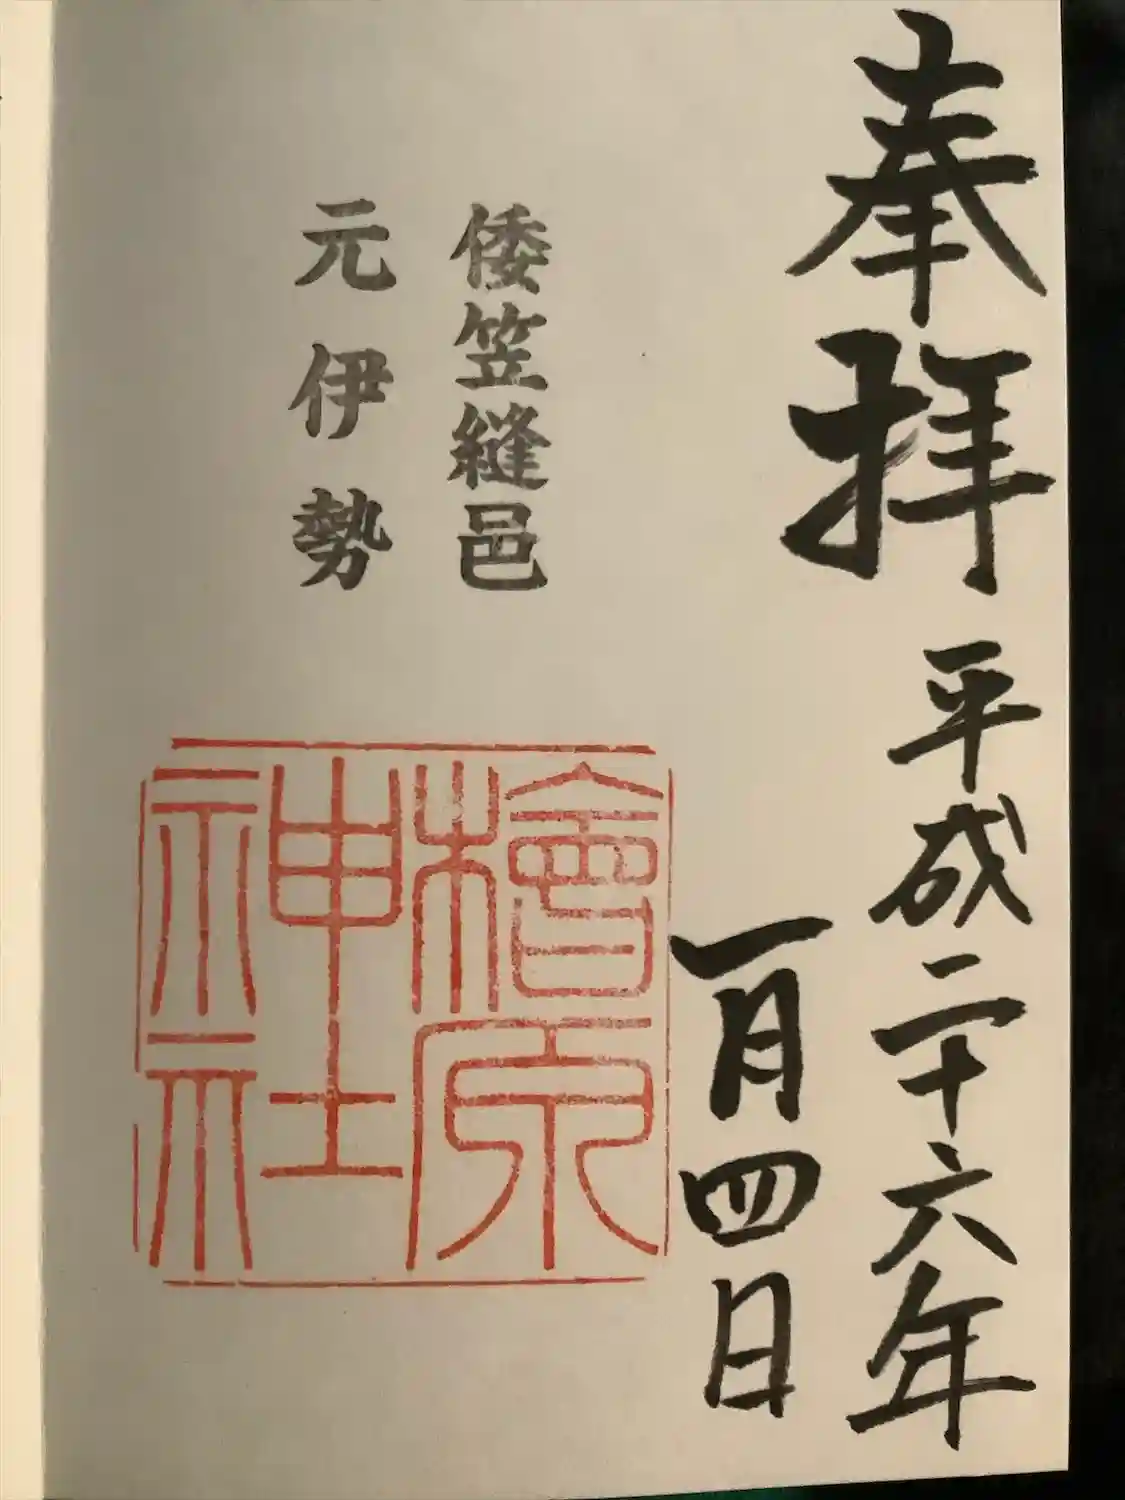 奉拝
平成二十六年
一月四日
倭笠縫邑
元伊勢
檜原
神社